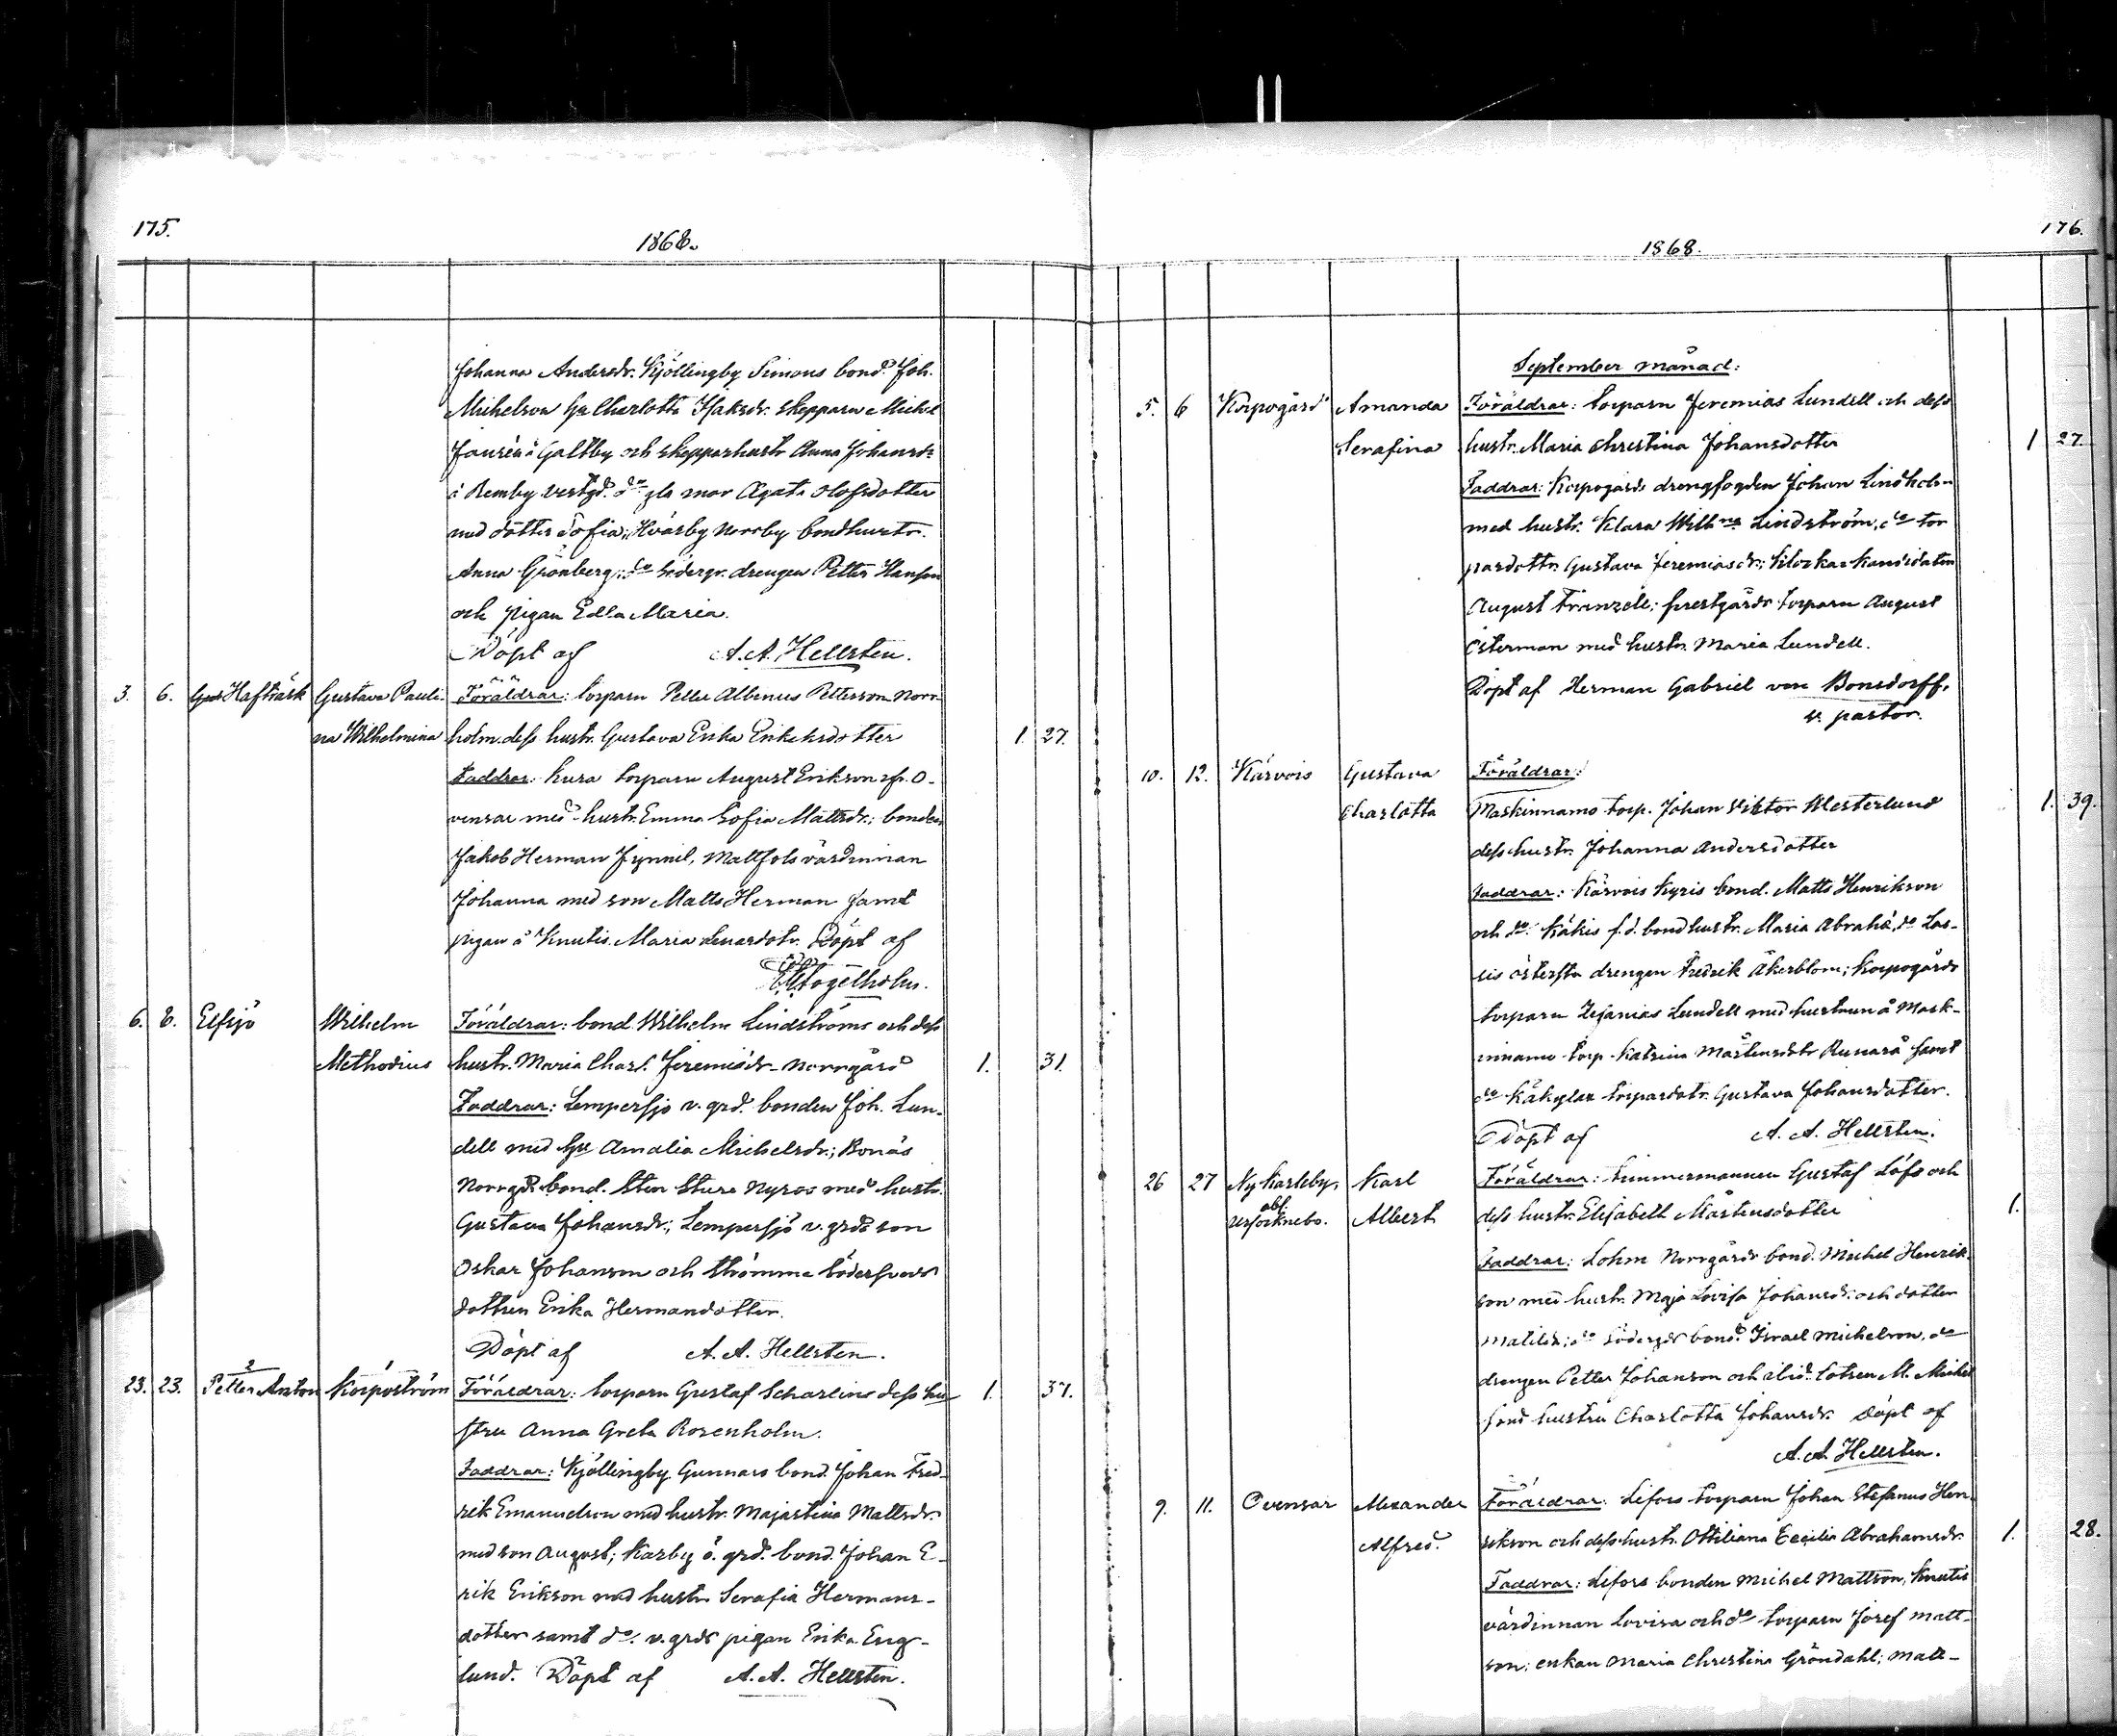 175.
1868.
Johanna Andersdr. Kjöllingby Simons bond. Joh.
Michelson hu Charlotta Isaksdr. skepparn Michel
Jansén å Galtby och skepparhustr. Anna Johansdr
å Remby vestgd. do gla mor Agata Olofsdotter
med dotter Sofia; Hvarsby Norrby bondhustr.
Anna Grönberg; do Södergr. drengen Petter Hanson
och pigan Edla Maria.
Döpt af A. A. Hellsten.
3. 6. Hafträsk Gustava Pauli- Föräldrar: torparn Petter Albinus Petterson Norr-
na Wilhelmina holm. dess hustr. Gustava Erika Eriksdotter 1. 27.
Faddrar: torparn August Erikson fr. O-
vensar med hustr. Emma Sofia Mattsdr.; bonden
Jakob Herman, Mattfols värdinnan
Johanna med son Matts Herman samt
pigan å Knutis. Maria Lenardotr. Döpt af
Fogelholm.
6. 8. Elfsjö Wilhelm Föräldrar: bond. Wilhelm Lindströms och dess
Methodius hustr. Maria Charl. Jeremiasdr. Norrgård 1. 31.
Faddrar: Lempersjö v. grd. bonden Joh. Lun-
dell med hu Amalia Michelsdr.; Bonäs
Norrgd. bond. Sten Sture Nyros med hustr.
Gustava Johansdr.; Lempersjö v. grds son
Oskar Johanson och Strömma
dottren Erika Hermansdotter.
Döpt af A. A. Hellsten.
23. 23. Petter Anton Korpoström Föräldrar: torparn Gustaf Scharlins dess hu- 1. 37.
stru Anna Greta Rosenholm.
Faddrar: Kjöllingby Gunnars bond. Johan Fred-
rik Emanuelson med hustr. Majastina Mattsdr.
med son August; Karby ö. grd. bond. Johan E-
rik Erikson med hustr. Serafia Hermans-
dotter samt do. v. grds pigan Erika Eng-
lund. Döpt af A. A. Hellsten.
176.
1868.
September månad:
5. 6 Korpogård Amanda Föräldrar: torparn Jeremias Lundell och dess
Serafina hustr. Maria Christina Johansdotter 1 27.
Faddrar: Korpogårds drengfogden Johan Lindholm
med hustr. Klara Willhna Lindström, do tor
pardottr. Gustava Jeremiasdr.; Klockar Kandidaten
August Franzell; Prestgårds torparn August
Österman med hustr. Maria Lundell.
Döpt af Herman Gabriel von Bonsdorff.
v. pastor.
10. 12. Kärvois Gustava Föräldrar:
Charlotta Maskinnamo torp. Johan Viktor Westerlund 1. 39.
dess hustr. Johanna Andersdotter
Faddrar: Kärvois Kyris bond. Matts Henrikson
och do. Käkis f.d. bondhustr. Maria Abrahd, do Las-
sis drengen Fredrik Åkerblom; Korpogårds
torparn Zefanias Lundell med hustrun å Mask-
innamo torp. Katrina Mårtensdotr Runarå samt
do Käkylax torpardotr. Gustava Johansdotter.
Döpt af A. A. Hellsten.
26 27 Ny Karleby Karl Föräldrar: timmermannen Gustaf Löfs och
obf. ursocknebo. Albert dess hustr. Elisabeth Mårtensdotter 1.
Faddrar: Lohm Norrgårds bond. Michel Henrik-
son med hustr. Maja Lovisa Johansdr. och dotter
Matilda; do Södergrds bond. Israel Michelson, do
drengen Petter Johanson och lotsen M. Michel
sons hustru Charlotta Johansdr. Döpt af
A. A. Hellsten.
9. 11. Ovensar Alexander Föräldrar: Lefors torparn Johan Stefanus Hen-
Alfred. rikson och dess hustr. Ottiliana Cecilia Abrahamsdr. 1. 28.
Faddrar: Lefors bonden Michel Mattson, Knutis
värdinnan Lovisa och do torparn Josef Matt-
son; enkan Maria Christina Gröndahl; Matt-